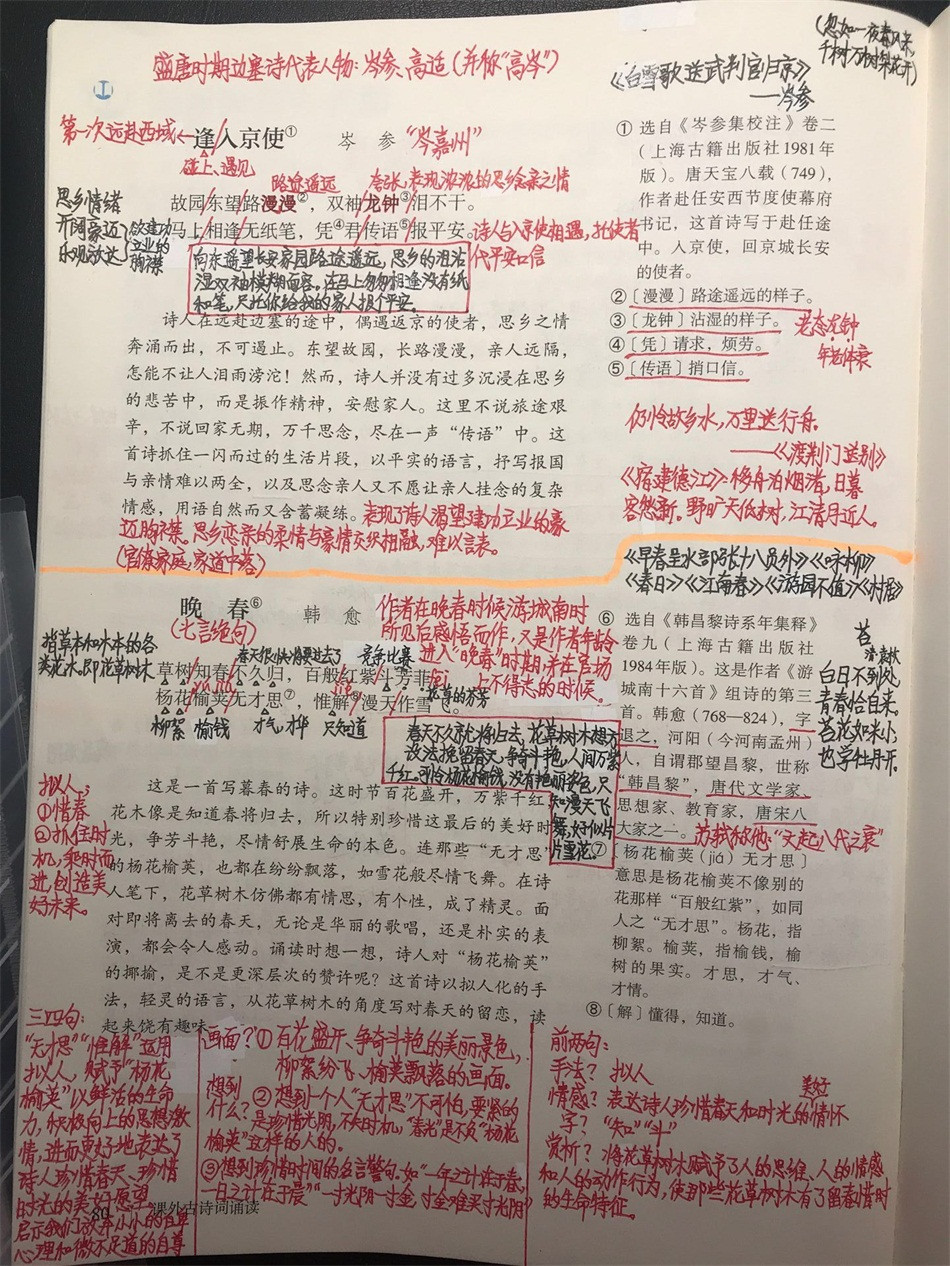 (忽如一夜春风来,
千树万树梨花开)
盛唐时期边塞诗代表人物:岑参、高适(并称“高岑”)
《白雪歌送武判官归京》
——岑参
第一次远赴西域←逢入京使①
岑 参 “岑嘉州”
碰上、遇见
路途遥远
夸张,表现浓浓的思乡念亲之情
故园东望路漫漫②,双袖龙钟③泪不干。
马上相逢无纸笔,凭④君传语⑤报平安。
诗人与入京使相遇,托使者
代平安口信
思乡情绪
开阔豪迈
乐观放达
欲建功
立业的
胸襟
向东遥望长安家园路途遥远,思乡的泪沾
湿双袖模糊面容。在马上匆匆相逢没有纸
和笔,只托你给我的家人报个平安。
诗人在远赴边塞的途中,偶遇返京的使者,思乡之情
奔涌而出,不可遏止。东望故园,长路漫漫,亲人远隔,
怎能不让人泪雨滂沱!然而,诗人并没有过多沉浸在思乡
的悲苦中,而是振作精神,安慰家人。这里不说旅途艰
辛,不说回家无期,万千思念,尽在一声“传语”中。这
首诗抓住一闪而过的生活片段,以平实的语言,抒写报国
与亲情难以两全,以及思念亲人又不愿让亲人挂念的复杂
情感,用语自然而又含蓄凝练。
表现了诗人渴望建功立业的豪
迈胸襟。思乡恋亲的柔情与豪情交织相融,难以言表。
(官僚家庭,家道中落)
① 选自《岑参集校注》卷二
(上海古籍出版社1981年
版)。唐天宝八载(749),
作者赴任安西节度使幕府
书记,这首诗写于赴任途
中。入京使,回京城长安
的使者。
②〔漫漫〕路途遥远的样子。
③〔龙钟〕沾湿的样子。
老态龙钟
年迈体衰
④〔凭〕请求,烦劳。
⑤〔传语〕捎口信。
仍怜故乡水,万里送行舟。
——《渡荆门送别》
《宿建德江》移舟泊烟渚,日暮
客愁新。野旷天低树,江清月近人。
《早春呈水部张十八员外》《咏柳》
《春日》《江南春》《游园不值》《村居》
晚 春⑥
韩 愈
(七言绝句)
作者在晚春时候游城南时
所见后感悟而作,又是作者年龄
进入“晚春”时期,并在官场
上不得志的时候。
指草本和木本的各
类花木。即花草树木
春天很快将要过去了
竞争比赛
草树知春不久归,百般红紫斗芳菲。
花草的芬芳
yú jiá
jiě
杨花榆荚无才思⑦,惟解⑧漫天作雪飞。
柳絮 榆钱 才气,才华 只知道
春天不久就将归去,花草树木想方
设法挽留春天,争奇斗艳,人间万紫
千红。可怜杨花榆钱,没有艳丽姿色,只
知漫天飞
舞,好似片
片雪花。
拟人,
①惜春
②抓住时
机,乘时而
进,创造美
好未来。
这是一首写暮春的诗。这时节百花盛开,万紫千红,
花木像是知道春将归去,所以特别珍惜这最后的美好时
光,争芳斗艳,尽情舒展生命的本色。连那些“无才思”
的杨花榆荚,也都在纷纷飘落,如雪花般尽情飞舞。在诗
人笔下,花草树木仿佛都有情思,有个性,成了精灵。面
对即将离去的春天,无论是华丽的歌唱,还是朴实的表
演,都会令人感动。诵读时想一想,诗人对“杨花榆荚”
的揶揄,是不是更深层次的赞许呢?这首诗以拟人化的手
法,轻灵的语言,从花草树木的角度写对春天的留恋,读
起来饶有趣味。
⑥ 选自《韩昌黎诗系年集释》
卷九(上海古籍出版社
1984年版)。这是作者《游
城南十六首》组诗的第三
首。韩愈(768—824),字
退之,河阳(今河南孟州)
人,自谓郡望昌黎,世称
“韩昌黎”,唐代文学家、
思想家、教育家,唐宋八
大家之一。
苏轼称他“文起八代之衰”
⑦〔杨花榆荚(jiá)无才思〕
意思是杨花榆荚不像别的
花那样“百般红紫”,如同
人之“无才思”。杨花,指
柳絮。榆荚,指榆钱,榆
树的果实。才思,才气、
才情。
⑧〔解〕懂得,知道。
苔
清 袁枚
白日不到处,
青春恰自来。
苔花如米小,
也学牡丹开。
三四句:
“无才思”“惟解”运用
拟人,赋予“杨花
榆荚”以鲜活的生命
力,积极向上的思想激
情,进而更好地表达了
诗人珍惜春天、珍惜
时光的美好愿望
心理和微不足道的自尊
画面?①百花盛开、争奇斗艳的美丽景色,
柳絮纷飞、榆荚飘落的画面。
想到
什么?
②想到一个人“无才思”不可怕,要紧的
是珍惜光阴,不失时机,“春光”是不负“杨花
榆荚”这样的人的。
③想到珍惜时间的名言警句。如“一年之计在于春,
一日之计在于晨”“一寸光阴一寸金,寸金难买寸光阴”
前两句:
手法?拟人
美好
情感?表达诗人珍惜春天和时光的情怀
字?“知”“斗”
赏析?将花草树木赋予了人的思维、人的情感
和人的动作行为,使那些花草树木有了留春惜时
的生命特征。
80 课外古诗词诵读